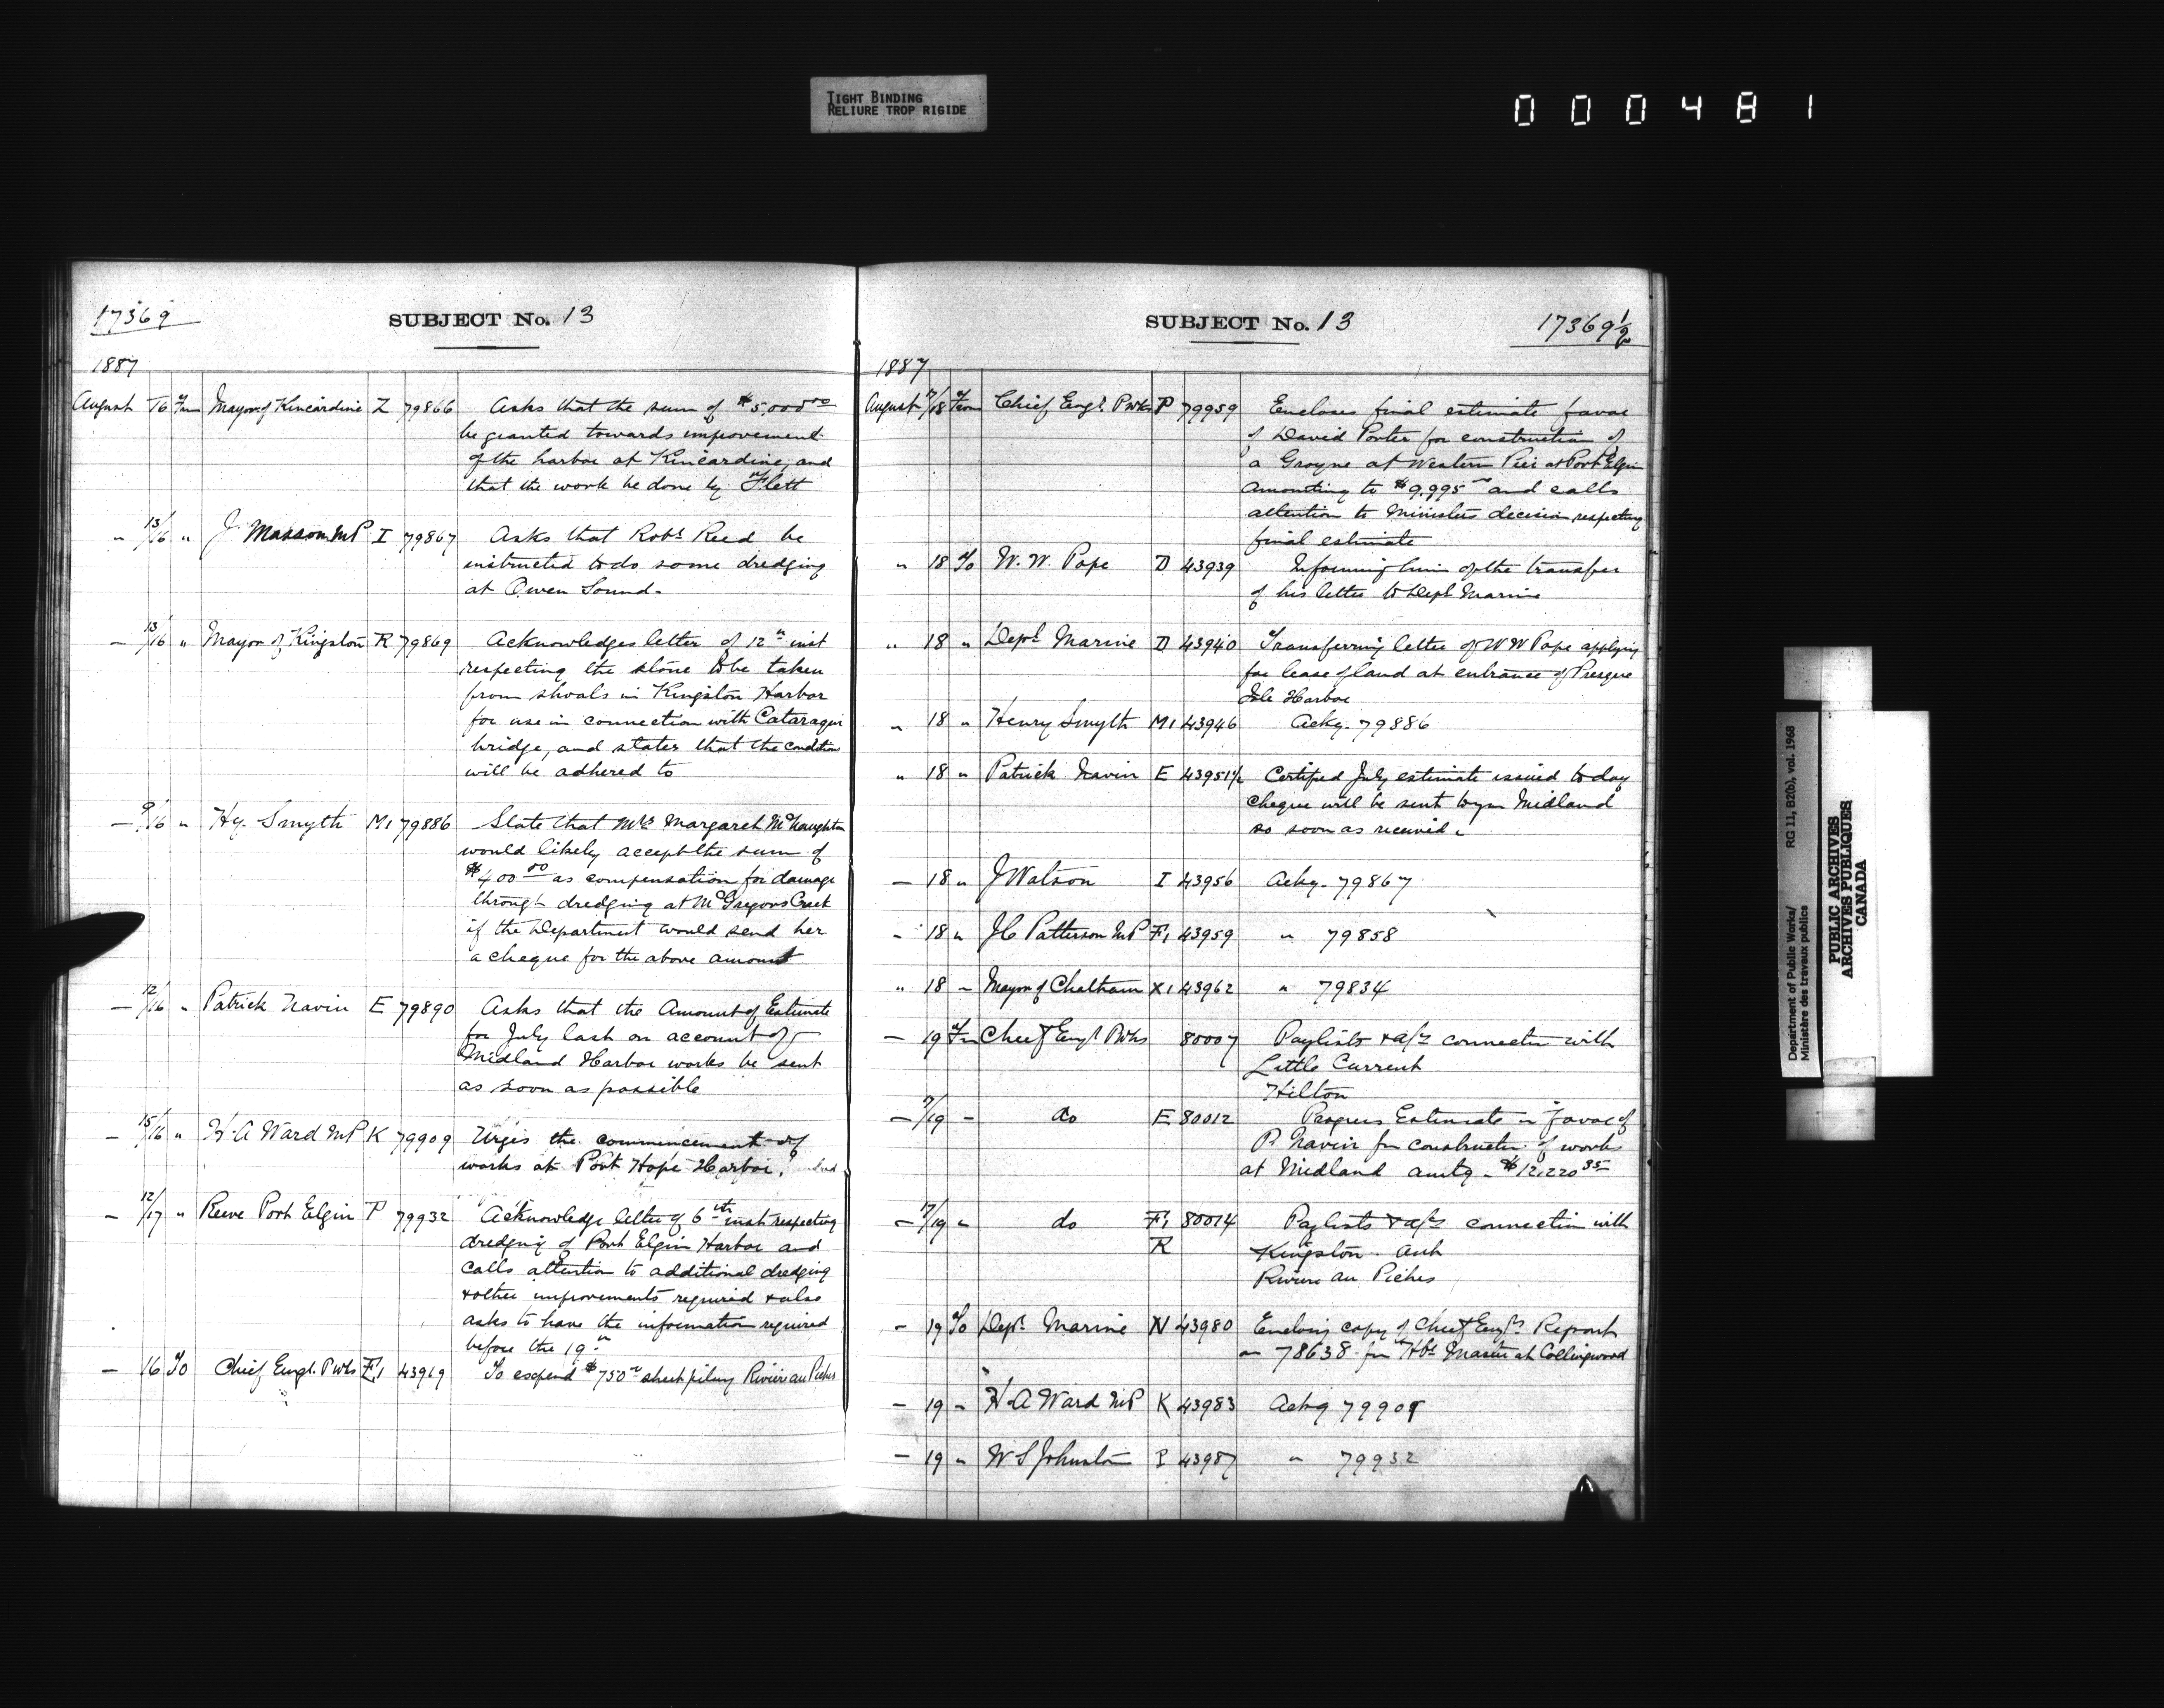 TIGHT BINDING
RELIURE TROP RIGIDE
000481
17369
SUBJECT No. 13
1887
August 16 From Mayor of Kincardine Z 79866 Asks that the sum of $5,000 00
be granted towards improvement
of the harbor at Kincardine, and
that the work be done by Flett
" 13/16 " J Masson MP I 79867 Asks that Robt Reed be
instructed to do some dredging
at Owen Sound.
— 13/16 " Mayor of Kingston R 79869 Acknowledges letter of 12th inst
respecting the stone to be taken
from shoals in Kingston Harbor
for use in connection with Cataraqui
bridge, and states that the condition
will be adhered to
— 9/16 " Hy. Smyth M1 79886 State that Mrs Margaret McNaughton
would likely accept the sum of
$400 00 as compensation for damage
through dredging at McGregors Creek
if the Department would send her
a cheque for the above amount
— 12/16 " Patrick Navin E 79890 Asks that the Amount of Estimate
for July last on account of
Midland Harbor works be sent
as soon as possible
— 15/16 " H. A Ward MP K 79909 Urges the commencement of
works at Port Hope Harbor.
— 12/17 " Reeve Port Elgin P 79932 Acknowledge letter of 6th inst respecting
dredging of Port Elgin Harbor and
calls attention to additional dredging
& other improvements required & also
asks to have the information required
before the 19th
— 16 To Chief Engr. PWks F1 43969 To expend $750 sheet piling Rivière au Pêches
SUBJECT No. 13
17369½
1887
August 17/18 From Chief Engr. PWks P 79959 Encloses final estimate favor
of David Porter for construction of
a Groyne at Western Pier at Port Elgin
amounting to $9,995 and calls
attention to Ministers decision respecting
final estimate
" 18 To W. W. Pope D 43939 Informing him of the transfer
of his letter to Dept Marine
" 18 " Dept Marine D 43940 Transferring letter of W W Pope applying
for lease of land at entrance of Presque
Isle Harbor
" 18 " Henry Smyth M1 43946 Ackg. 79886
" 18 " Patrick Navin E 43951½ Certified July estimate issued today
cheque will be sent to you Midland
so soon as received.
— 18 " J Watson I 43956 Ackg. 79867
— 18 " J C Patterson MP F1 43959 " 79858
" 18 — Mayor of Chatham X1 43962 " 79834
— 19 Fm Chief Engr PWks 80007 Paylists & a/cs connection with
Little Current
Hilton
— 9/19 — do E 80012 Progress Estimate in favor of
P. Navin for construction of works
at Midland amtg — $12,220 85
— 17/19 " do F1 80014 Paylists & a/cs connection with
R Kingston
Rivière au Pêches
— 19 To Dept. Marine N 43980 Enclosing copy of Chief Engrs Report
on 78638 for Hbr Master at Collingwood
— 19 " H. A Ward MP K 43983 Ackg 79909
— 19 " W S Johnston P 43987 " 79932
Department of Public Works/ RG 11, B2(b), vol. 1968
Ministère des travaux publics
PUBLIC ARCHIVES
ARCHIVES PUBLIQUES
CANADA